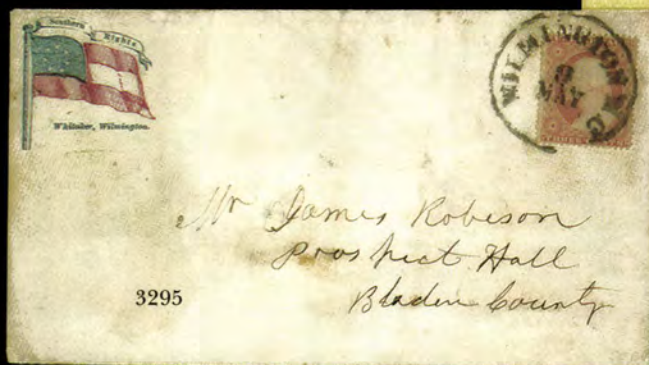 Southern
Rights
Whitaker, Wilmington.
WILMINGTON N.C
8
MAY
THREE CENTS
Mr James Robeson
Prospect Hall
Bladen County
3295